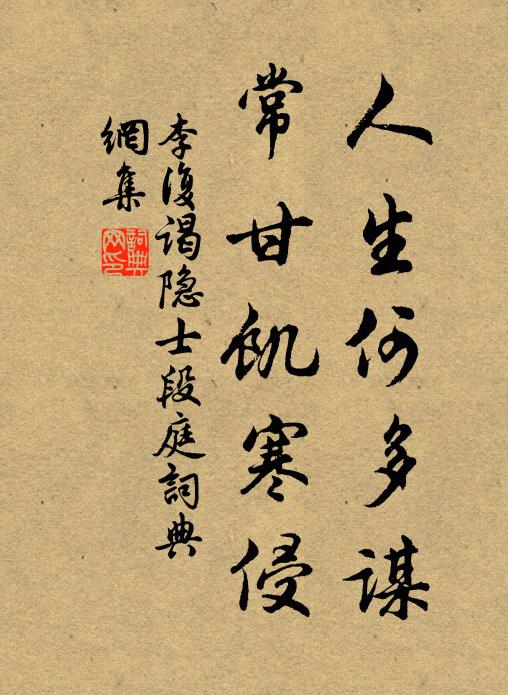 人生何多谋
常甘飢寒侵
李復谒隐士段庭詞典
網集
詞典網印